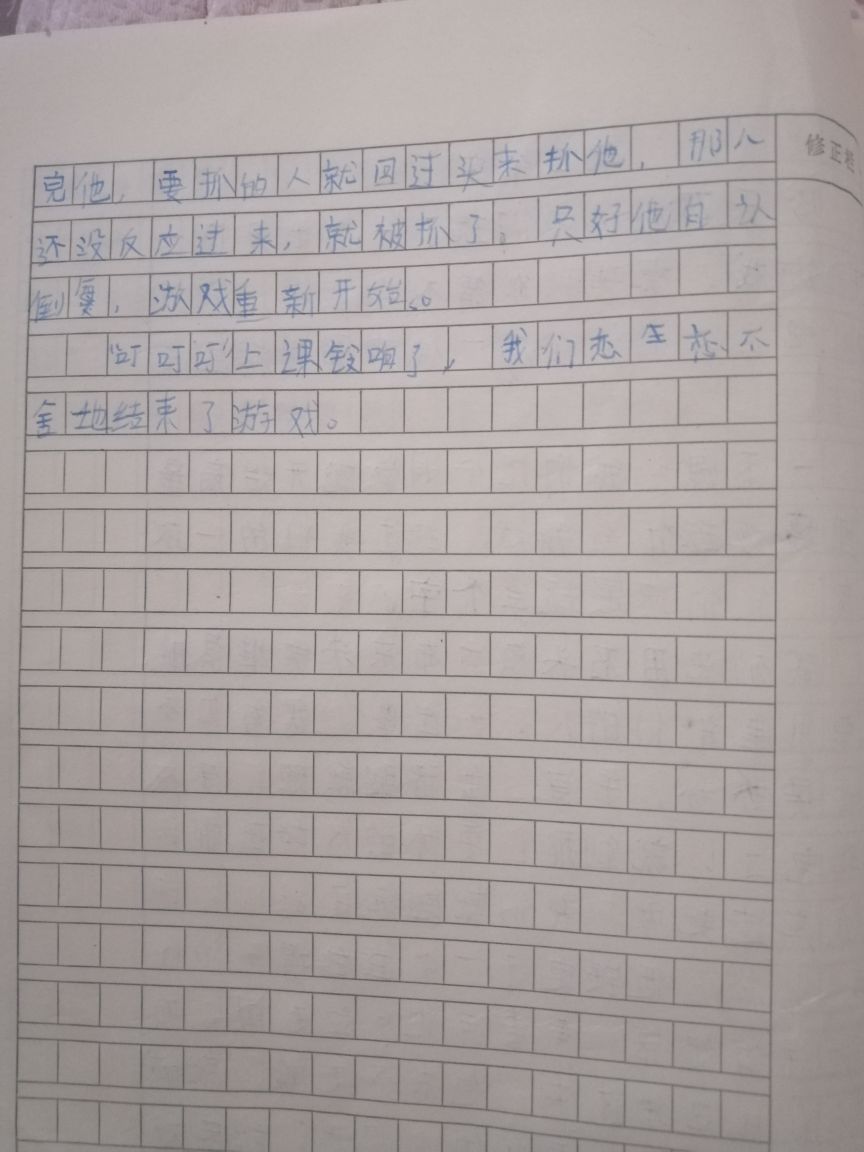 完他，要抓的人就回过头来抓他，那人 修正栏
还没反应过来，就被抓了。只好他自认
倒霉，游戏重新开始。
“叮叮叮”上课铃响了，我们恋恋不
舍地结束了游戏。